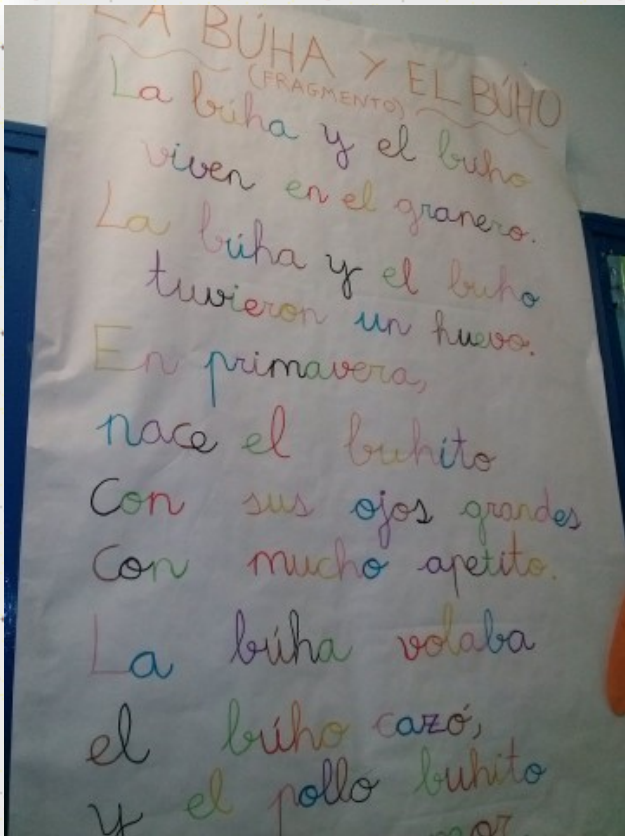 LA BÚHA Y EL BÚHO
(FRAGMENTO)
La búha y el buho
viven en el granero.
La búha y el buho
tuvieron un huevo.
En primavera,
nace el buhito
Con sus ojos grandes
Con mucho apetito.
La búha volaba
el búho cazó,
y el pollo buhito